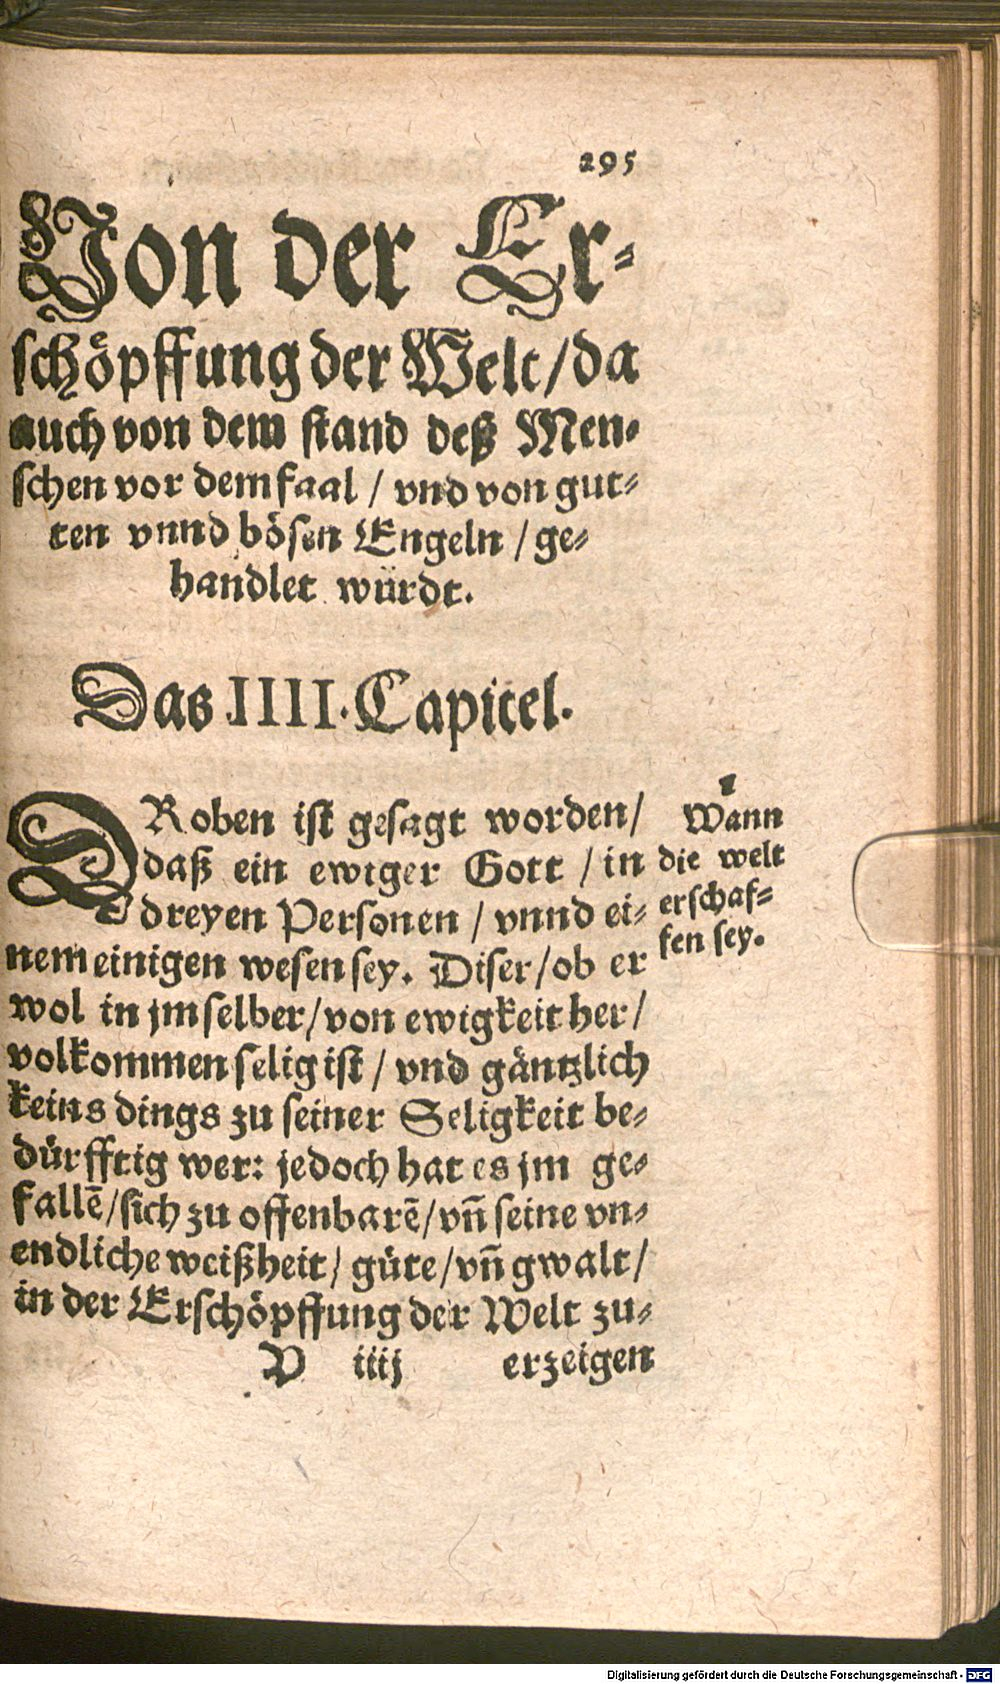 295
Von der Er-
schöpffung der Welt/da
auch von dem stand deß Men-
schen vor dem faal / vnd von gut-
ten vnnd bösen Engeln / ge-
handlet würdt.
Das IIII. Capitel.
DRoben ist gesagt worden/
daß ein ewiger Gott / in
dreyen Personen / vnnd ei-
nem einigen wesen sey. Diser/ob er
wol in jm selber/von ewigkeit her/
volkommen selig ist / vnd gäntzlich
keins dings zu seiner Seligkeit be-
dürfftig wer: jedoch hat es jm ge-
fallē/sich zu offenbarē/vñ seine vn-
endliche weißheit/ güte/vñ gwalt/
in der Erschöpffung der Welt zu-
V iiij erzeigen
1
Wann
die welt
erschaf-
fen sey.
Digitalisierung gefördert durch die Deutsche Forschungsgemeinschaft - DFG